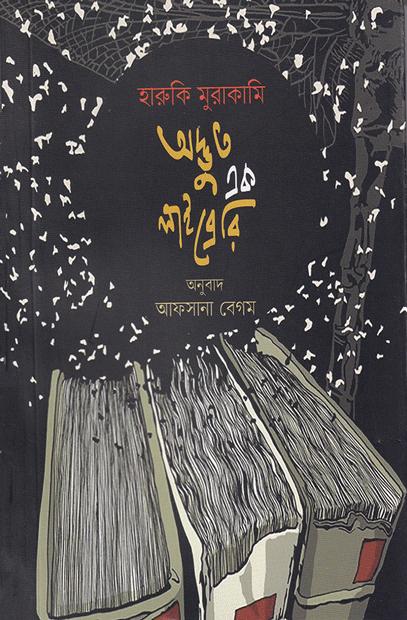 হারুকি মুরাকামি
অদ্ভুত
এক
লাইব্রেরি
অনুবাদ
আফসানা বেগম